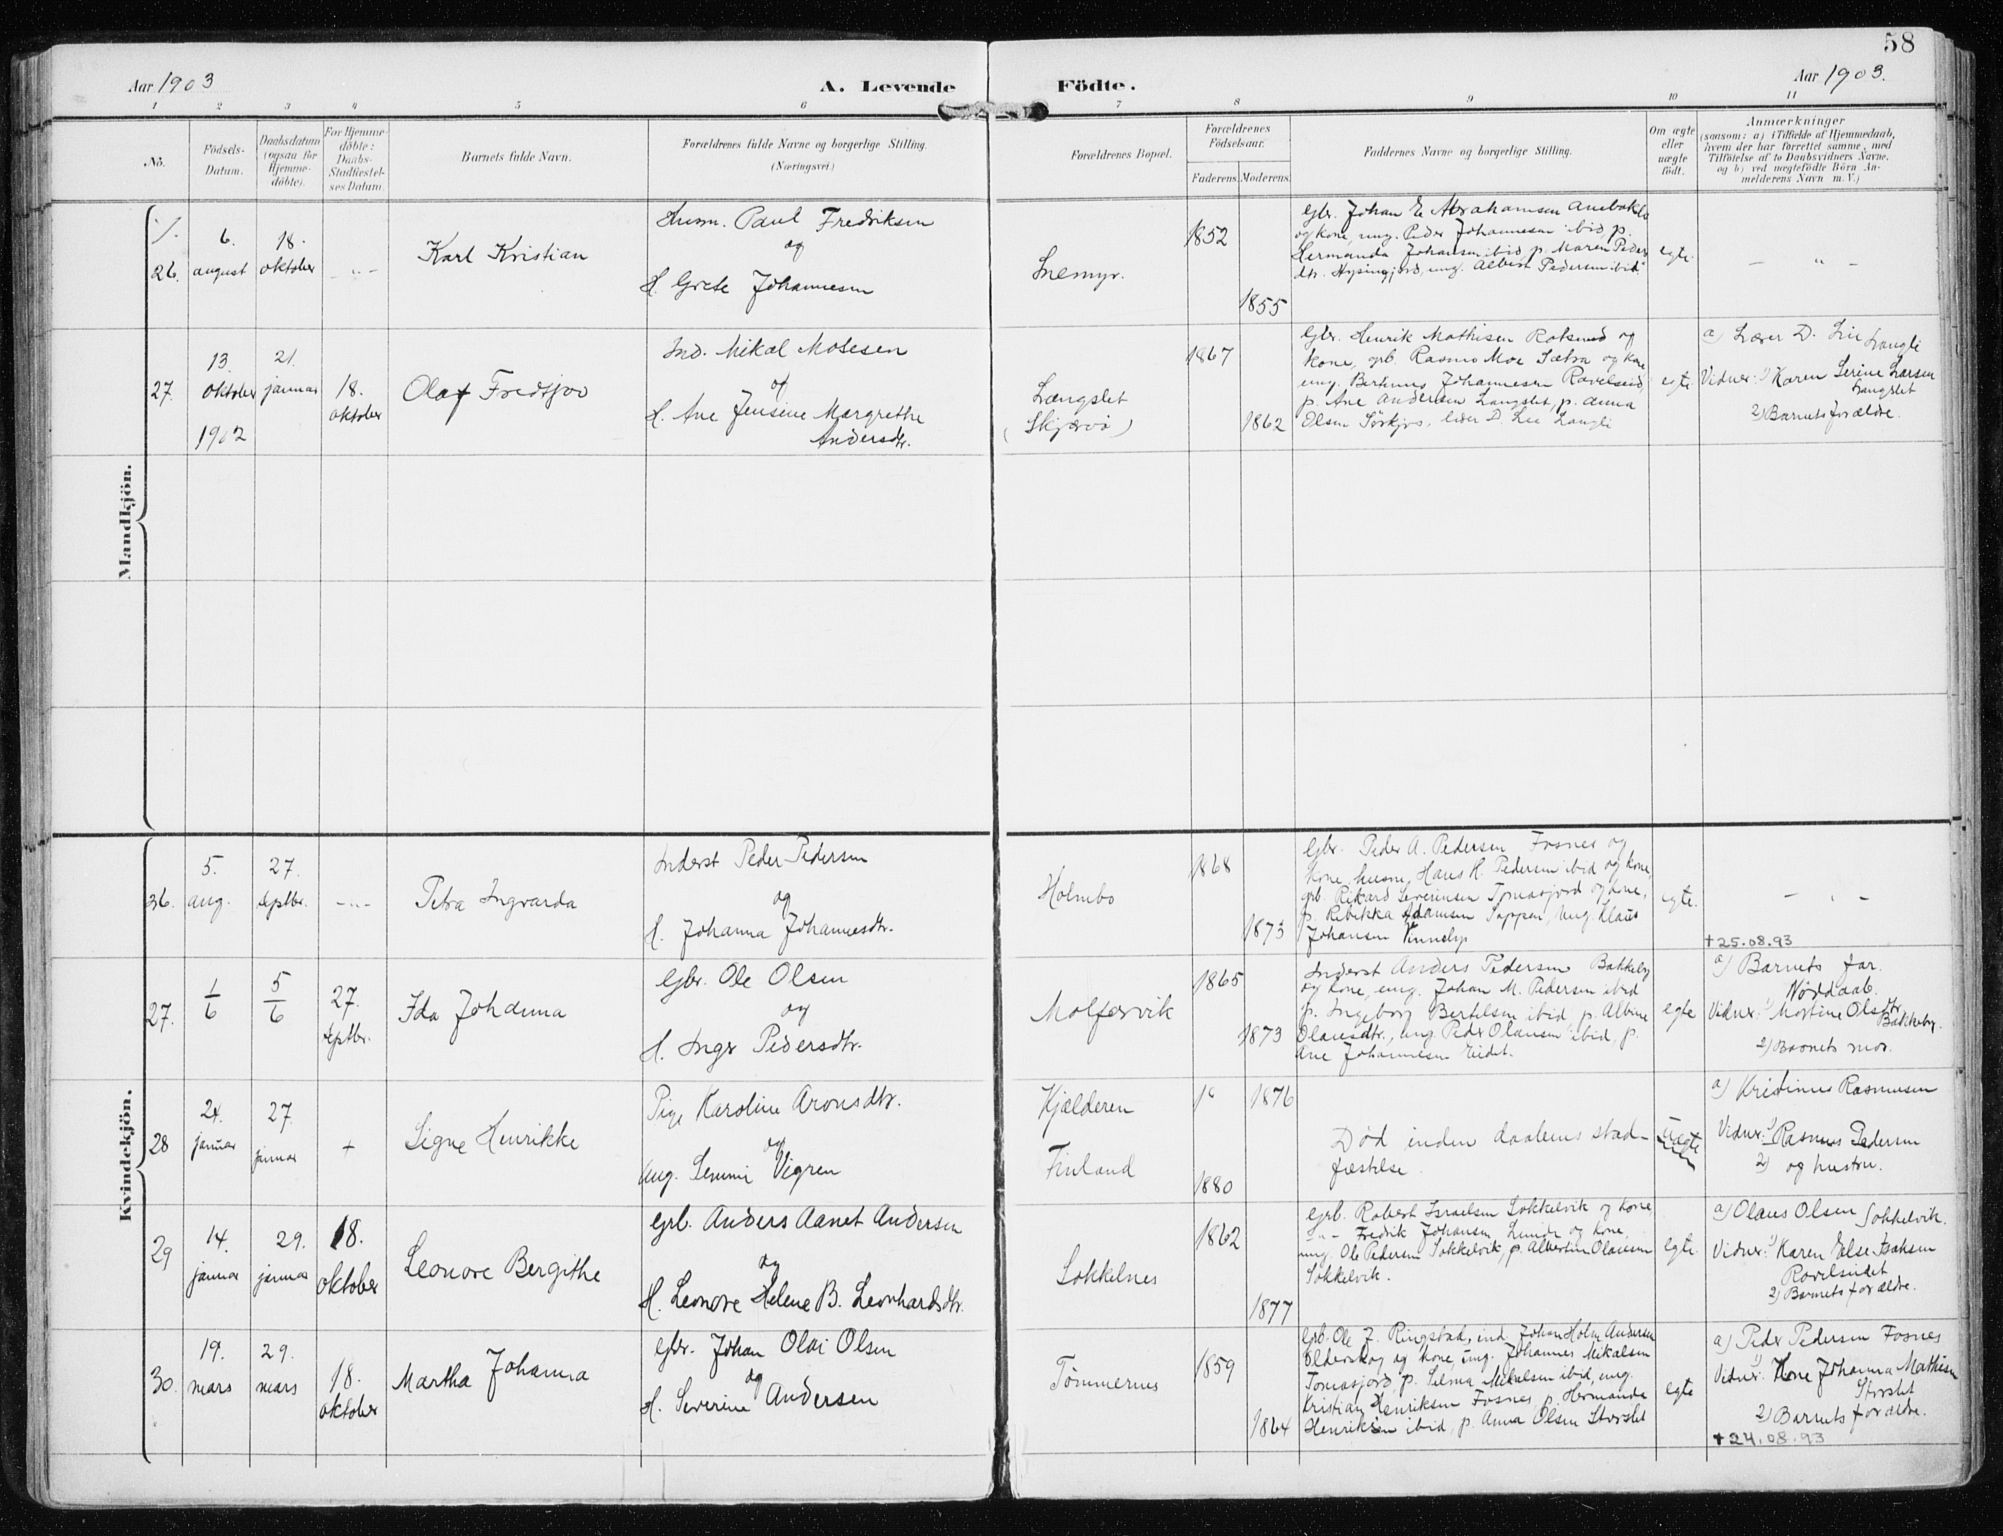 58
Aar 1903
A. Levende
Födte.
Aar 1903.
1 2 3 4 5 6 7 8 9 10 11
No.
Födsels-
Datum.
Daabsdatum
(ogsaa for
Hjemme-
döbte).
For Hjemme-
döbte:
Daabs-
Stadfæstel-
ses Datum.
Barnets fulde Navn.
Forældrenes fulde Navne og borgerlige Stilling.
(Næringsvei)
Forældrenes Bopæl.
Forældrenes
Födselsaar.
Faderens. Moderens.
Faddernes Navne og borgerlige Stilling.
Om ægte
eller
uægte
født.
Anmærkninger
(saasom: a) i Tilfælde af Hjemmedaab,
hvem der har forrettet samme, med
Tilföielse af to Daabsvidners Navne,
og b) ved uægtefödte Börn An-
melderens Navn m. V.)
Mandkjön.
26.
6.
august
18.
oktober
- " -
Karl Kristian
Paul Fredriksen
og
H. Grete Johannesen
Snemyr.
1852
1855
Gbr. Johan E. Abrahamsen
og kone, ung. Peder Johannesen ibid, p.
Hermanda Johansen ibid, p. Maren Peder
dtr. ung. Albert Pedersen ibid
egte.
- " -
27.
13.
oktober
1902
21.
januar
18.
oktober
Olaf Fredtjov
Ind. Mikal Mosesen
og
H. Ane Jensine Margrethe
Andersdtr.
Længslet
(Skjervö)
1867
1862
Gbr. Henrik Mathisen Rotsund og
kone, grb. Rasmus Moe Sætra og kone
ung. Johannesen
p. Ane Andersen Langslet, p. Anna
Olsen Sörkjos, D. Lie Langli
egte
a) Lærer D. Lie Langli
Vidner: 1) Karen Serine Larsen
Langslet
2) Barnets forældre.
Kvindekjön.
26.
5.
aug.
27.
septbr.
- " -
Petra Ingvarda
Inderst Peder Pedersen
og
H. Johanna Johannesdtr.
Holmbo
1868
1873
Gbr. Peder A. Pedersen Fosnes og
kone, husm. Hans H. Pedersen ibid og kone,
grb. Rikard Severinsen og kone,
p. Rebikka Adamsen Toppen, ung. Klaus
Johansen
egte.
- " -
†25.08.93
27.
1/6
5/6
27.
septbr.
Ida Johanna
Gbr. Ole Olsen
og
H. Inger Pedersdtr.
Molfersvik
1865
1873
Inderst Anders Pedersen Bakkeby
og kone, ung. Johan M. Pedersen ibid
p. Ingeborg Bertelsen ibid p. Albine
Olausdtr., ung. Peder Olausen ibid, p.
Ane Johannesen Eidet.
egte
a) Barnets far.
Nöddaab.
Vidner: 1) Martine Olsdtr
Bakkeby.
2) Barnets mor.
28
24.
januar
27.
januar
+
Signe Henrikke
Pige Karoline Aronsdtr.
og
ung. Vigren
Kjelderen
Finland
1876
1880
Död inden daabens stad-
fæstelse.
uegte
a) Kristinus Rasmusen
Vidner: 1) Rasmus Pedersen
2) og hustru.
29
14.
januar
29.
januar
18.
oktober
Leonore Bergithe
Grb. Anders Aanet Andersen
og
H. Leonore Helene B. Leonhardsdtr.
Sokkelnes
1862
1877
Grb. Robert Israelsen Sokkelvik og kone,
- " - Fredrik Johansen Lunde og kone,
ung. Ole Pedersen Sokkelvik, p. Albertine Olausen
Sokkelvik.
egte
a) Olaus Olsen Sokkelvik.
Vidner: 1) Karen Else
Ravelseidet
2) Barnets forældre.
30.
19.
mars
29.
mars
18.
oktober
Martha Johanna
Gbr. Johan Olai Olsen
og
H. Severine Andersen
Tömmernes
1859
1864
Grb. Ole J. Ringstad, ind. Johan Holm Andersen
Olderskog og kone, ung. Johannes Mikalsen
Tomasjord, p. Selma Mikalsen ibid, ung.
Kristian Henriksen Fosnes, p. Hermanda
Henriksen ibid, p. Anna Olsen Storslet
egte
a) Peder Pedersen Fosnes
Vidner: 1) Kone Johanna Mathisen
Storslet
2) Barnets forældre.
†24.08.93